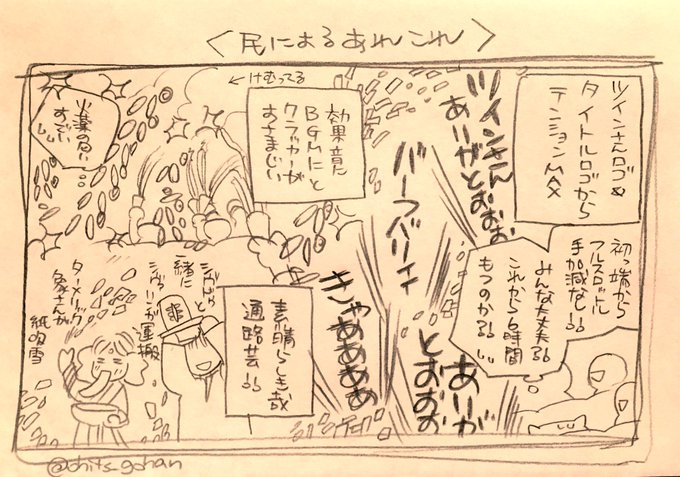 <民によるあれこれ>
ツインさんロゴ&
タイトルロゴから
テンションMAX
初っ端から
フルスロットル
手加減なし!!
みんな大丈夫!?
これから6時間
もつのかな!!
ツインさん
ありがとおおお
バーフバリィィ
ありが
とおおお
きゃああああ
←けむってる
効果音に
BGMにと
クラッカーが
すさまじい
火薬の匂い
すごい
素晴らしき哉
通路芸!!
一緒に
運搬
ターメリック
象さんが
紙吹雪
@ohits_gohan